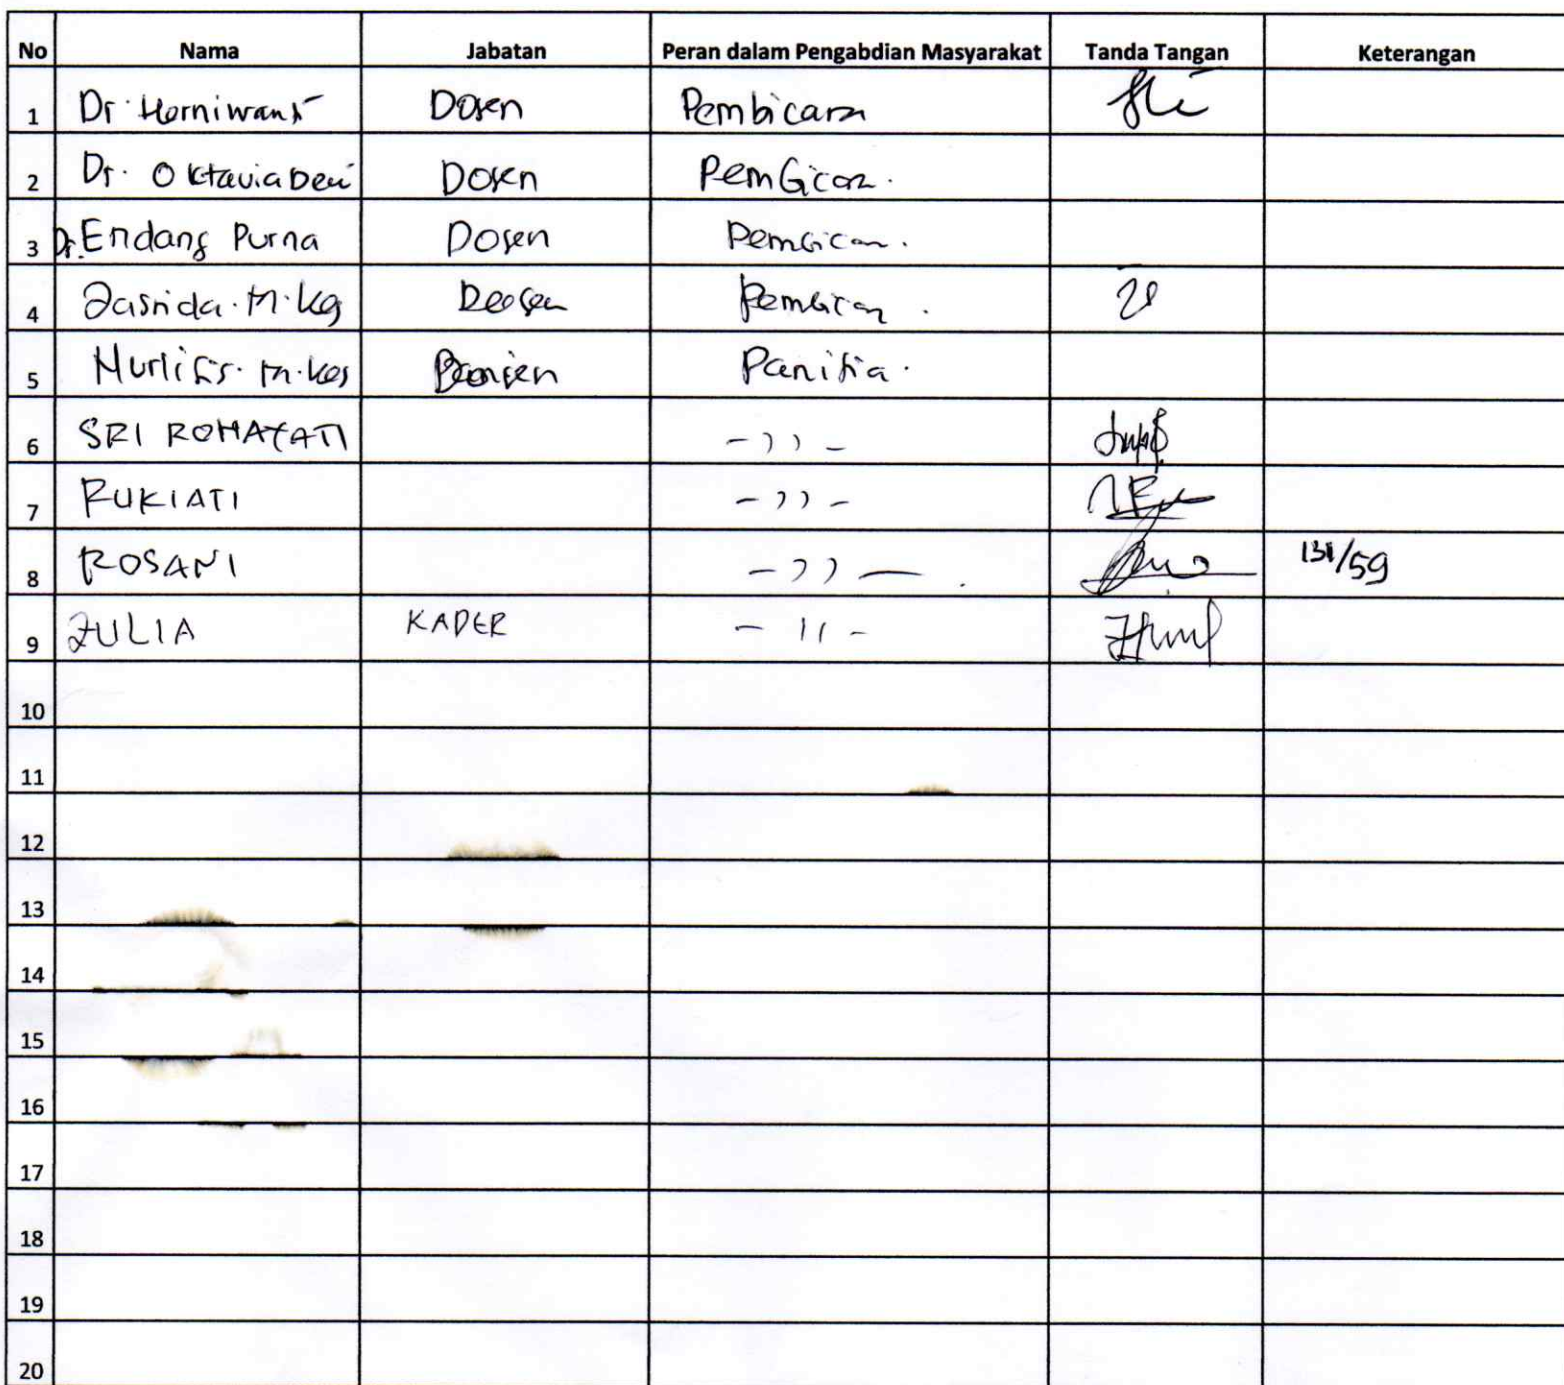 No Nama Jabatan Peran dalam Pengabdian Masyarakat Tanda Tangan Keterangan
1 Dr. Herniwanti Dosen Pembicara
2 Dr. Oktavia Dewi Dosen Pembicara.
3 Dr. Endang Purna Dosen Pembicara.
4 Jasrida. M. Kes Dosen Pembicara.
5 Nurlisis. M. Kes Dosen Panitia.
6 SRI ROHAYATI - ,, -
7 RUKIATI - ,, -
8 ROSANI - ,, - /59
9 ZULIA KADER - " -
10
11
12
13
14
15
16
17
18
19
20